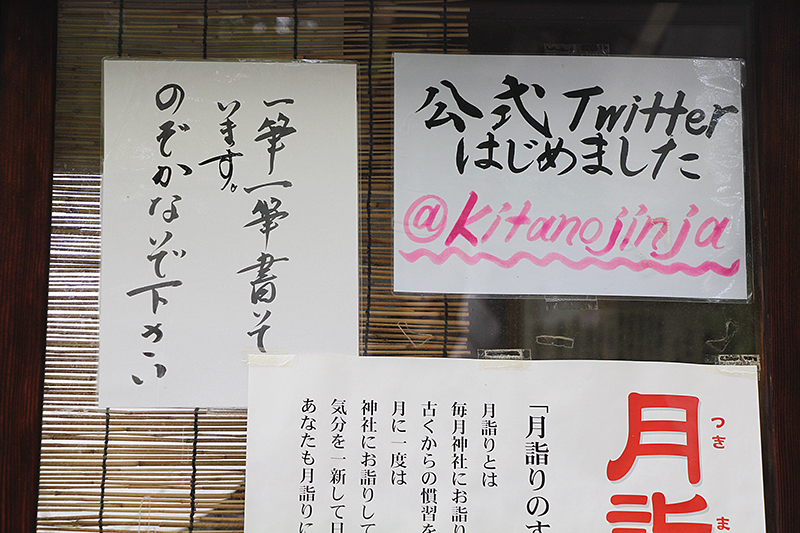 一筆一筆書いて
います。
のぞかないで下さい
公式Twitter
はじめました
@Kitanojinja
つき ま
月詣
「月詣りのす
月詣りとは
毎月神社にお詣り
古くからの慣習を
月に一度は
神社にお詣りして
気分を一新して日
あなたも月詣りに